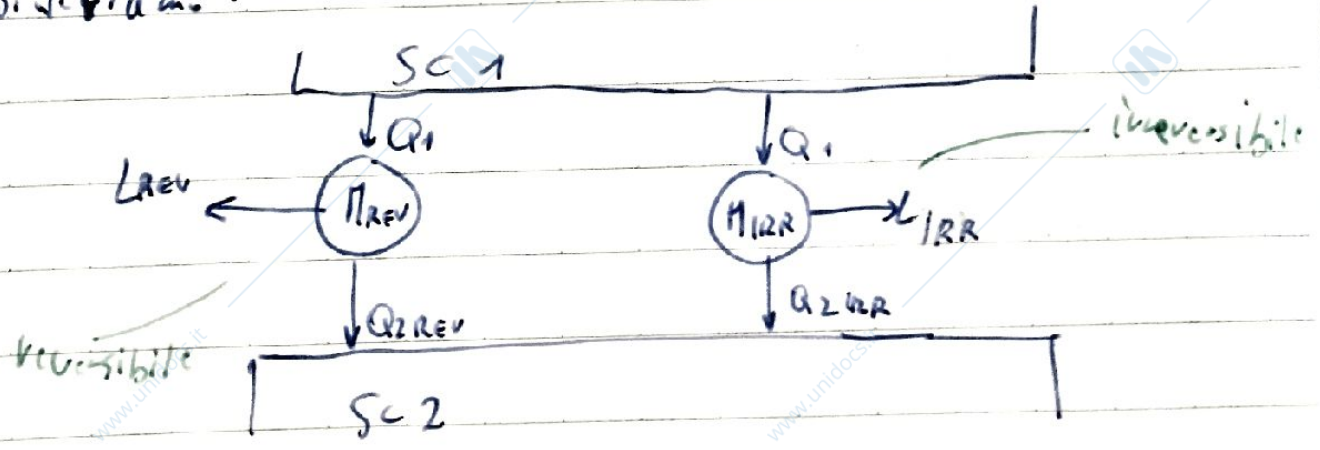 SC 1
Q1
Q1
irreversibile
LREV
MREV
MIRR
LIRR
Q2REV
Q2IRR
reversibile
www.unidocs.it
www.unidocs.
SC 2